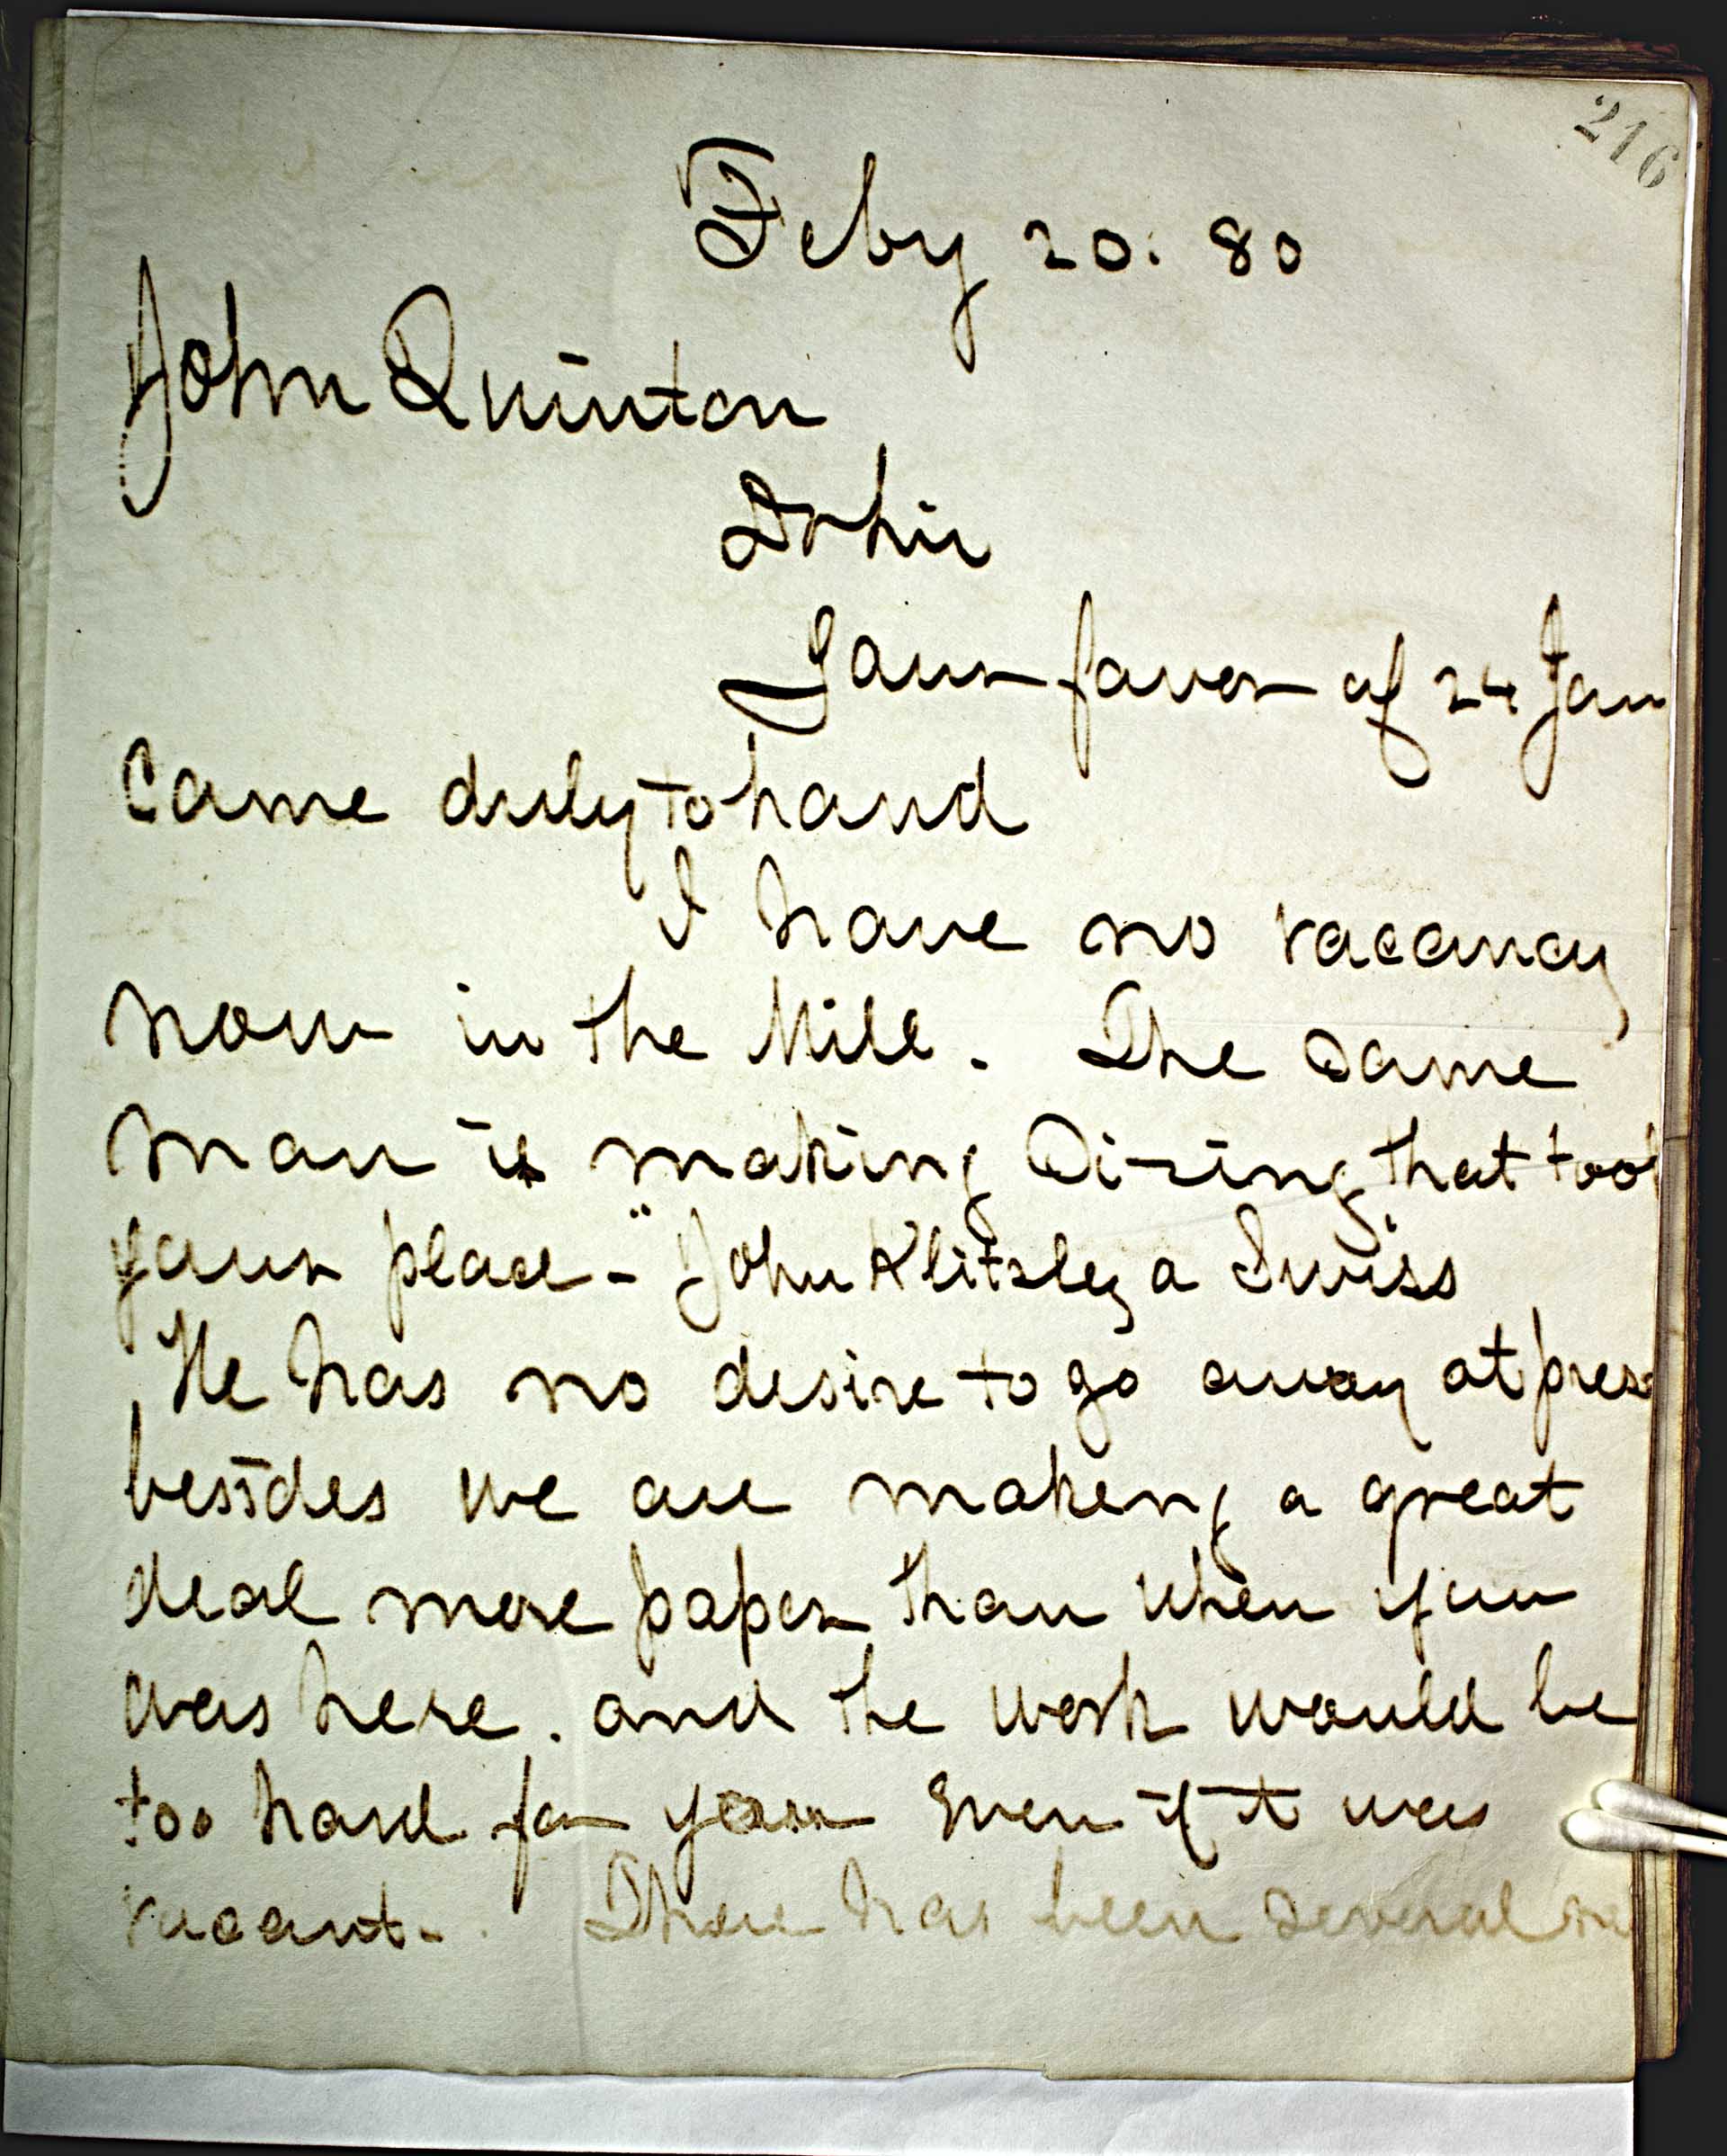 216
Feby 20. 80
John Quinton
Dr Sir
Your favor of 24 Jan
Came duly to hand
I have no vacancy
now in the Mill. The same
man is making Sizing that took
your place - John Klitzley a Swiss
He has no desire to go away at pres
besides we are making a great
deal more paper than when you
was here. and the work would be
too hard for you Even if it was
vacant. There has been several